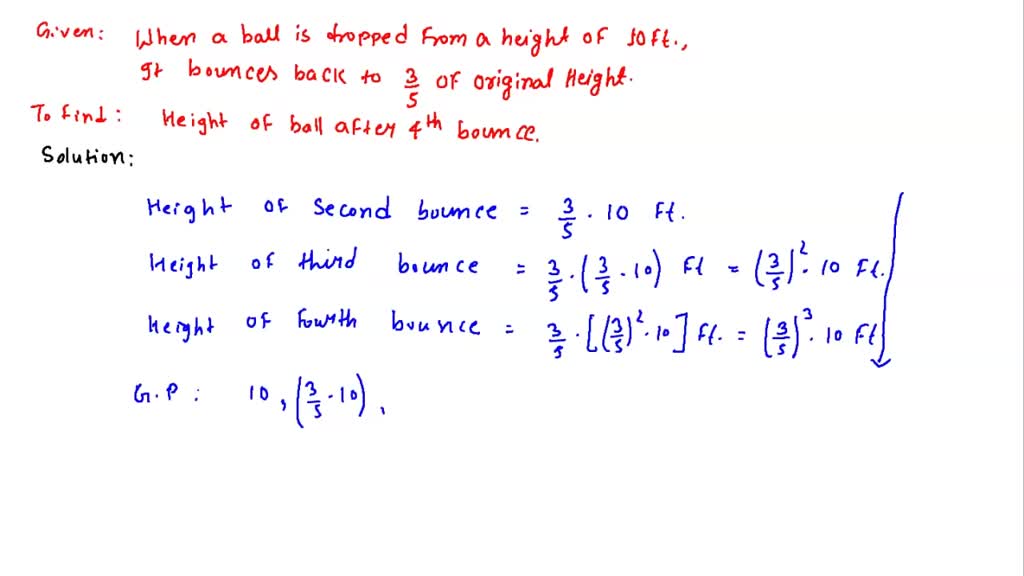 Given: When a ball is dropped from a height of 10ft.,
It bounces back to 3/5 of original Height.
To find: Height of ball after 4th bounce.
Solution:
Height of Second bounce = 3/5 · 10 Ft.
Height of third bounce = 3/5 · (3/5 · 10) Ft = (3/5)² · 10 Ft.
Height of Fourth bounce = 3/5 · [(3/5)² · 10] Ft. = (3/5)³ · 10 Ft
G.P : 10, (3/5 · 10),